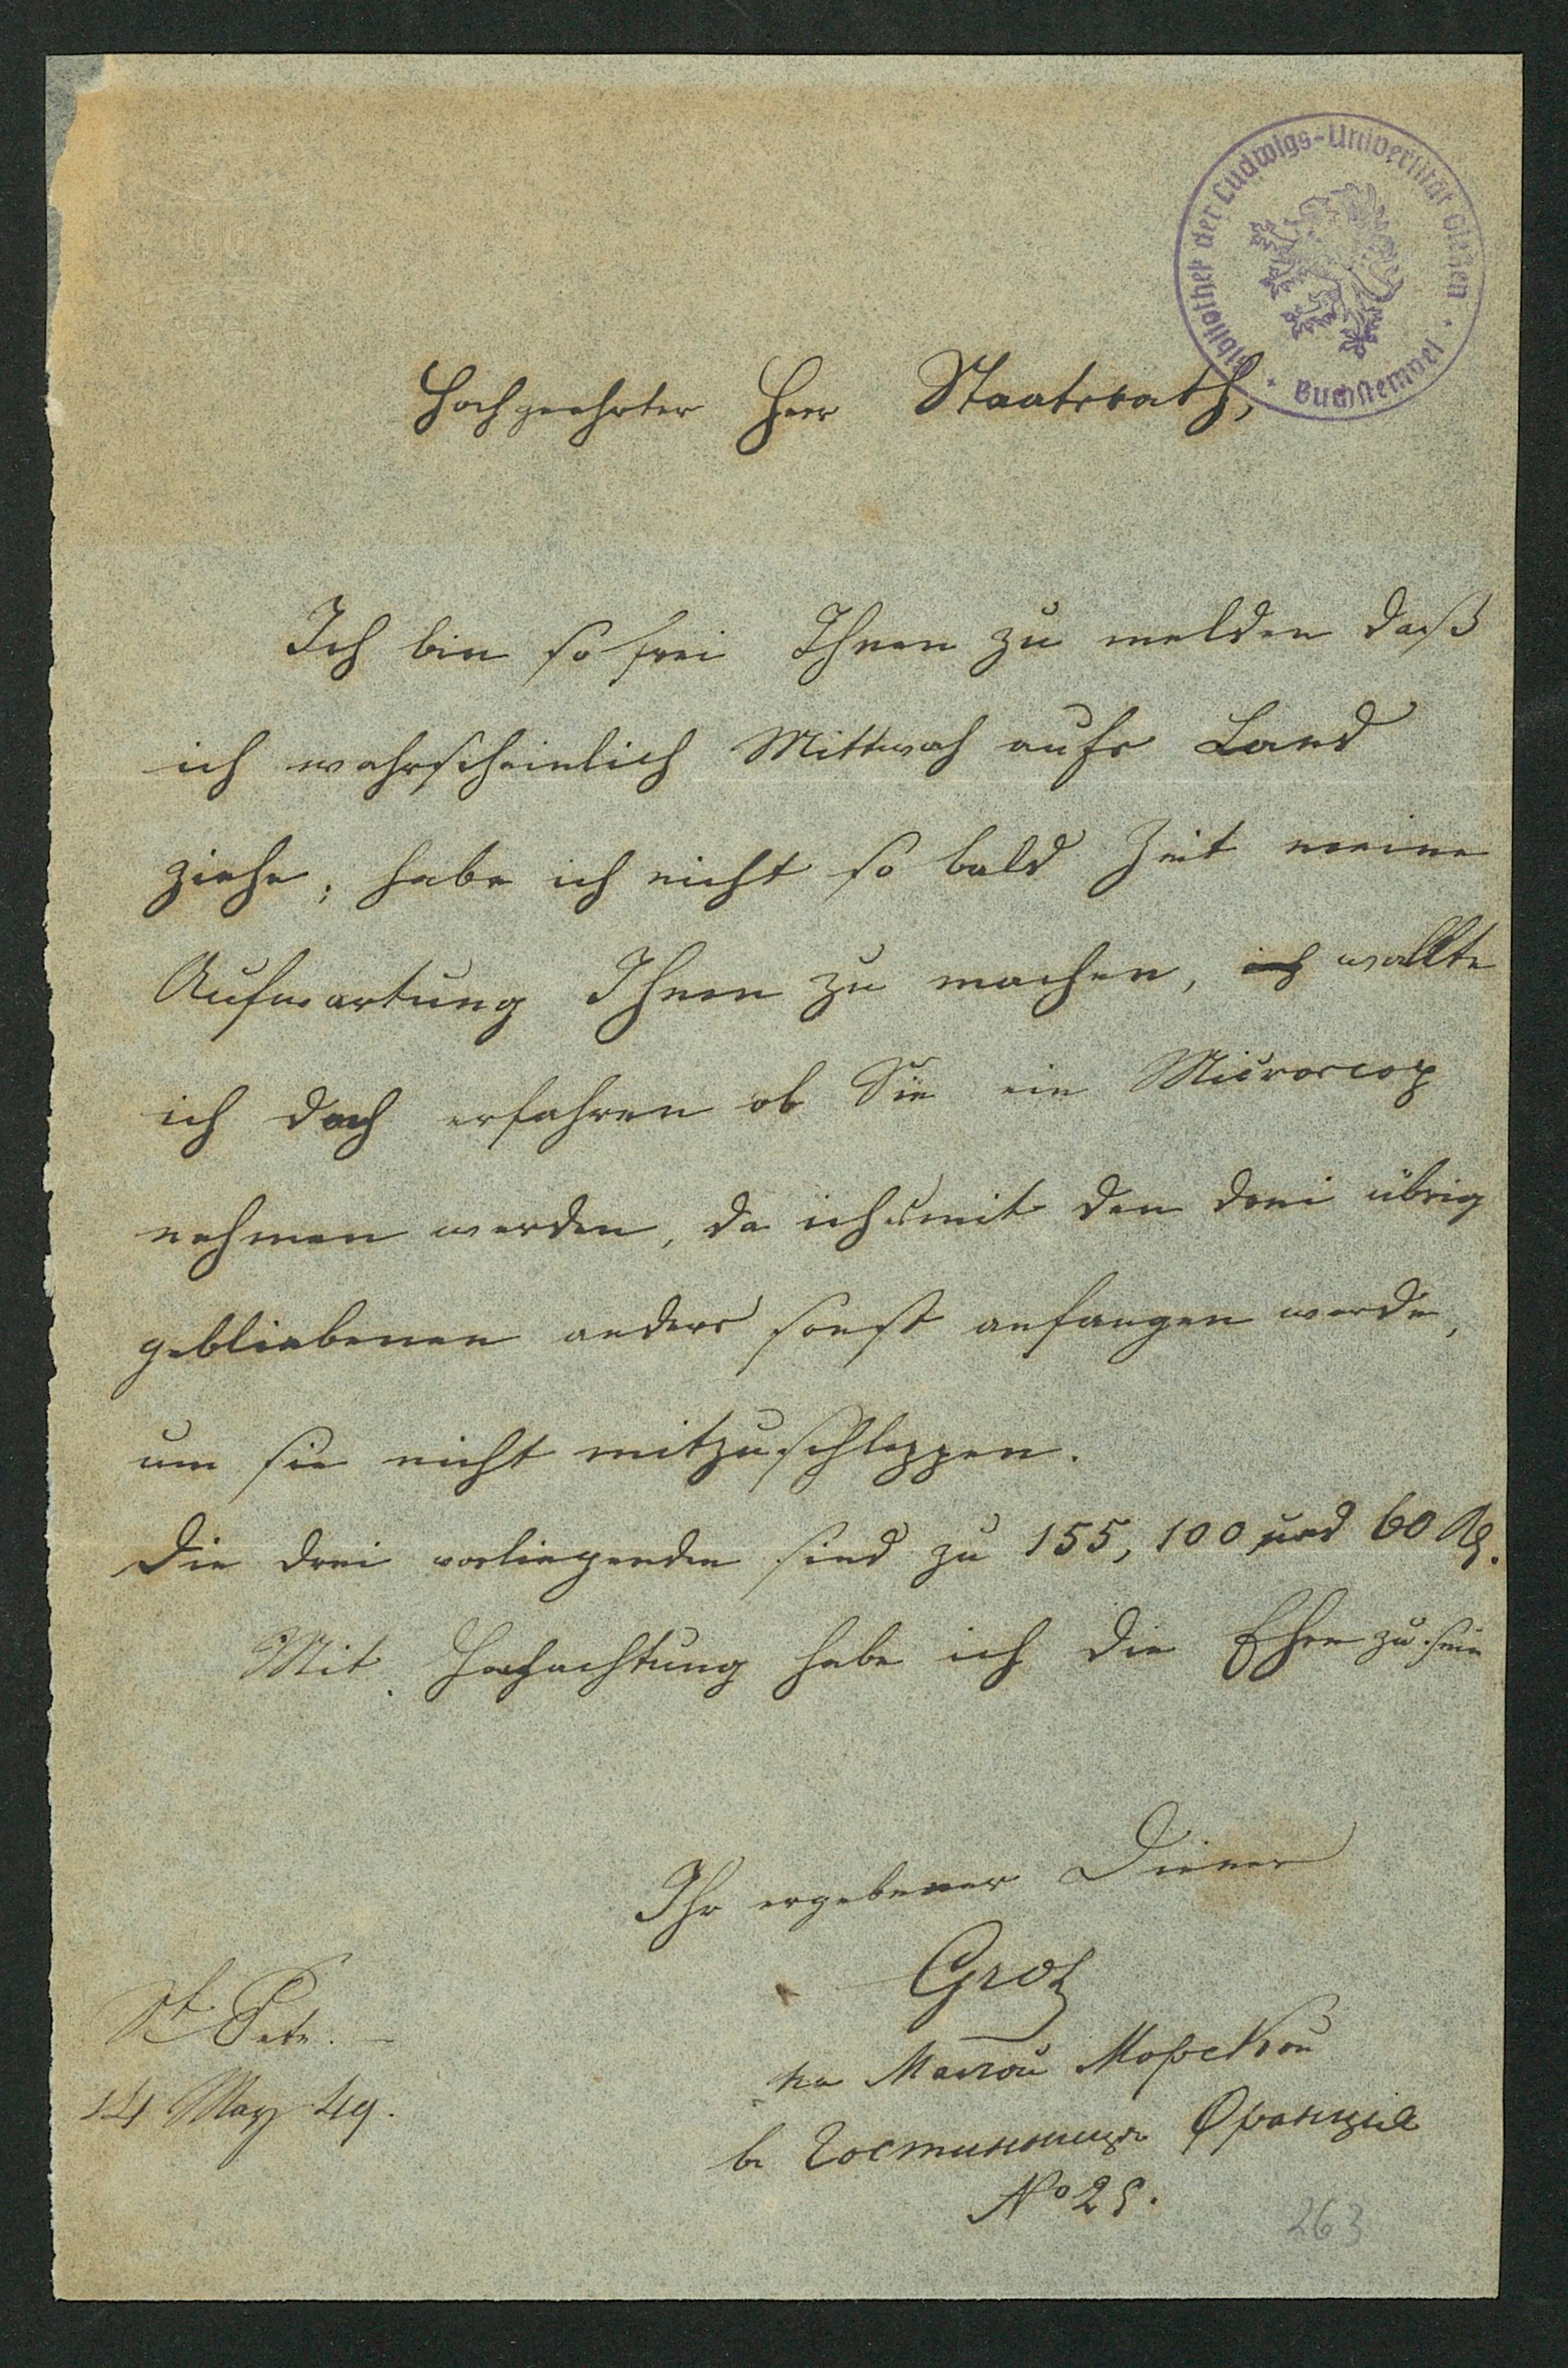 Bibliothek der Ludwigs-Universität Gießen
Buchstempel
Hochgeehrter Herr Staatsrath,
Ich bin so frei Ihnen zu melden daß
ich wahrscheinlich Mittwoch aufs Land
ziehe; habe ich nicht so bald Zeit meine
Aufwartung Ihnen zu machen, ich wollte
ich doch erfahren ob Sie ein Microscop
nehmen werden, da ich mit den drei übrig
gebliebenen anders sonst anfangen werde,
um sie nicht mitzuschleppen.
Die drei vorliegenden sind zu 155, 100 und 60 R.
Mit Hochachtung habe ich die Ehre zu sein
Ihr ergebener Diener
Groß
на Малой Морской
в Гостиннице Франція
No 25.
St Pete.
14 May 49.
263